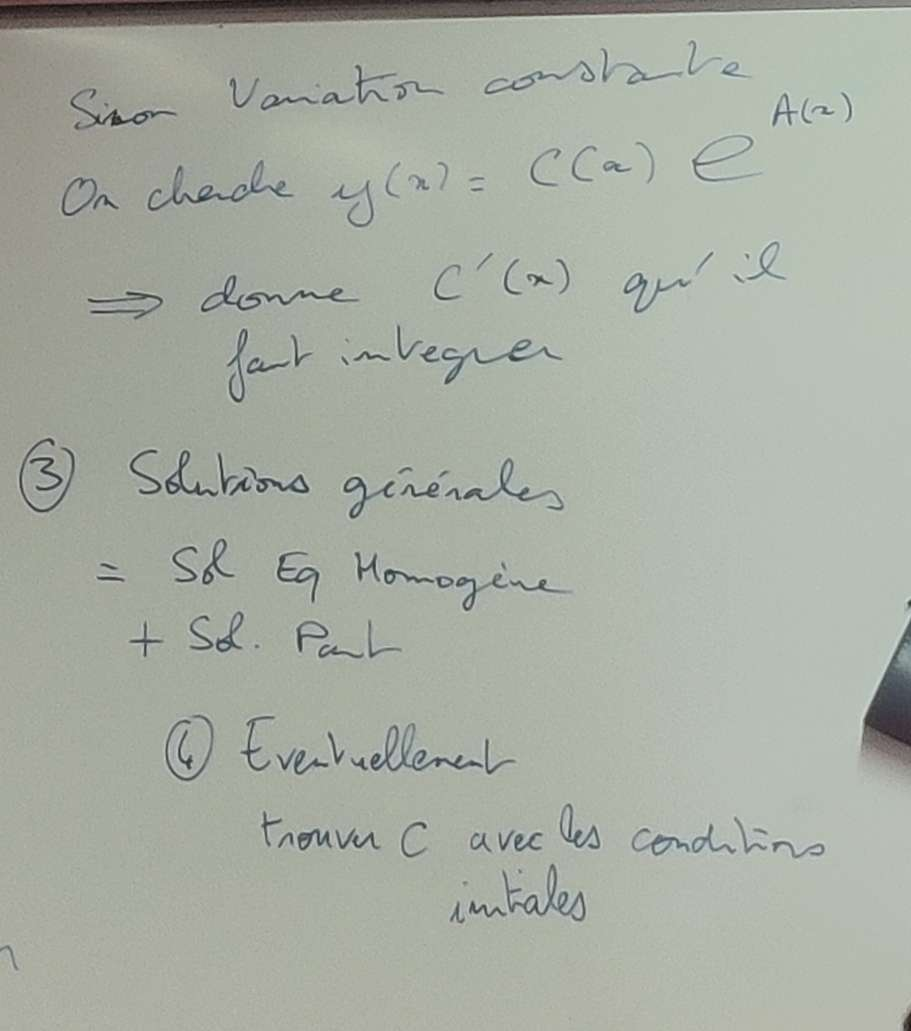 Sinon Variation constante
On cherche y(x) = C(x) e^A(x)
⇒ donne C'(x) qu'il
faut integrer
③ Solutions générales
= Sol Eq Homogène
+ Sol. Part
④ Eventuellement
trouver C avec les conditions
initiales